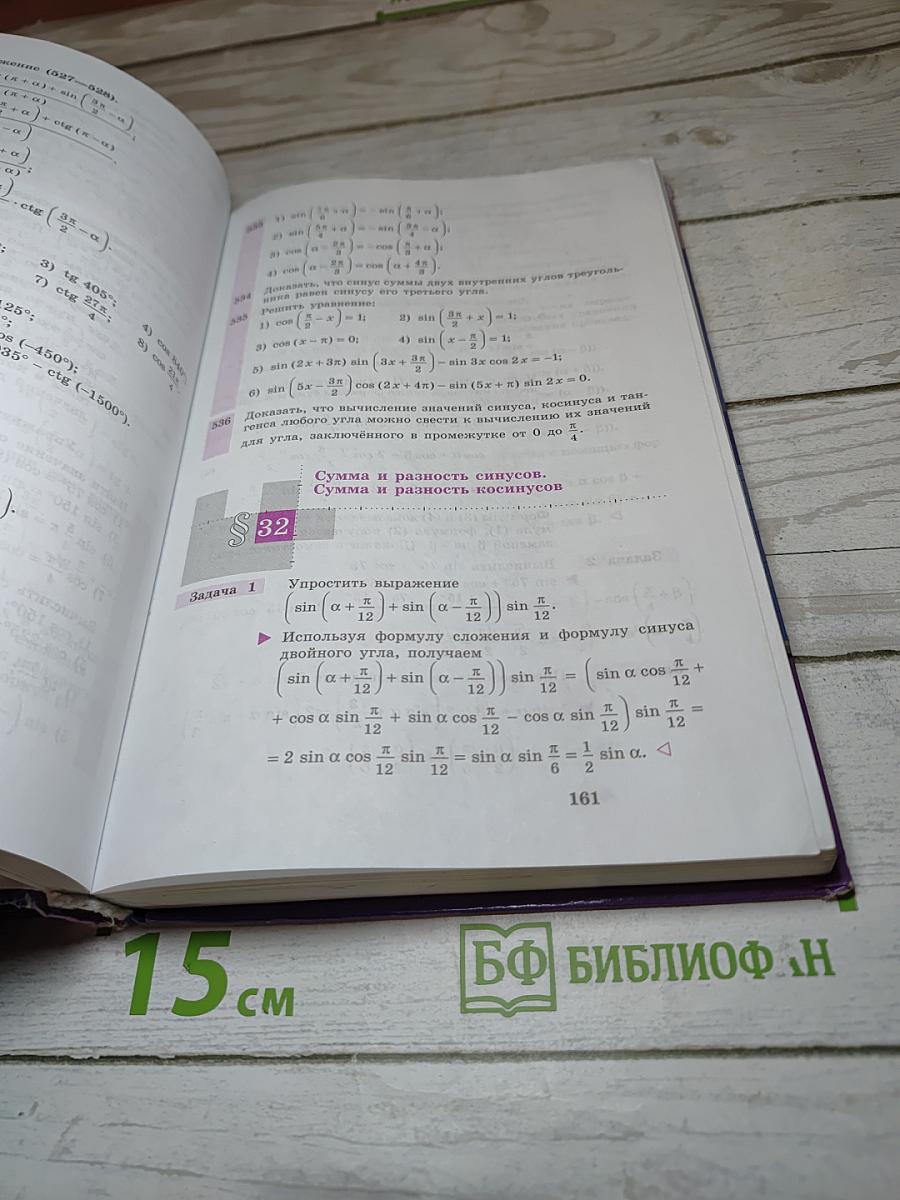 жение (527—528).
(π + α) + sin (3π/2 − α)
(π + α) ;
+ α) + ctg (π − α)
− α) .
+ α)
α) ;
· ctg (3π/2 − α).
3) tg 405°;
7) ctg 27π/4;
4) cos
8) cos
125°;
os (−450°);
935° − ctg (−1500°).
2) sin (5π/4 + α) = − sin (
3) cos (α − 2π/3) = − cos (π/3 + α);
4) cos (α − 2π/3) = cos (α + 4π/3).
534 Доказать, что синус суммы двух внутренних углов треуголь-
ника равен синусу его третьего угла.
535 Решить уравнение:
1) cos (π/2 − x) = 1; 2) sin (3π/2 + x) = 1;
3) cos (x − π) = 0; 4) sin (x − π/2) = 1;
5) sin (2x + 3π) sin (3x + 3π/2) − sin 3x cos 2x = −1;
6) sin (5x − 3π/2) cos (2x + 4π) − sin (5x + π) sin 2x = 0.
536 Доказать, что вычисление значений синуса, косинуса и тан-
генса любого угла можно свести к вычислению их значений
для угла, заключённого в промежутке от 0 до π/4.
Сумма и разность синусов.
Сумма и разность косинусов
§ 32
Задача 1 Упростить выражение
(sin (α + π/12) + sin (α − π/12)) sin π/12.
▶ Используя формулу сложения и формулу синуса
двойного угла, получаем
(sin (α + π/12) + sin (α − π/12)) sin π/12 = (sin α cos π/12 +
+ cos α sin π/12 + sin α cos π/12 − cos α sin π/12) sin π/12 =
= 2 sin α cos π/12 sin π/12 = sin α sin π/6 = 1/2 sin α. ◁
161
15 см
БФ БИБЛИОФ